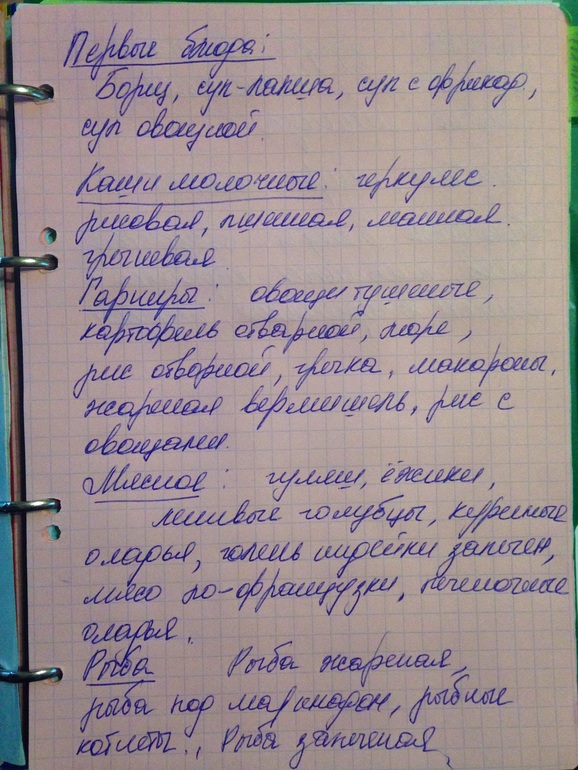 Первые блюда:
Борщ, суп-лапша, суп с фрикад.,
суп овощной.
Каши молочные: геркулес.
рисовая, пшенная, манная.
гречневая
Гарниры: овощи тушеные,
картофель отварной, пюре,
рис отварной, гречка, макароны,
жареная вермишель, рис с
овощами.
Мясное: гуляш, ёжики,
ленивые голубцы, куриные
оладья, голень индейки запечен,
мясо по-французки, печеночные
оладья.
Рыба Рыба жареная,
рыба под маринадом, рыбные
котлеты., Рыба запеченая,